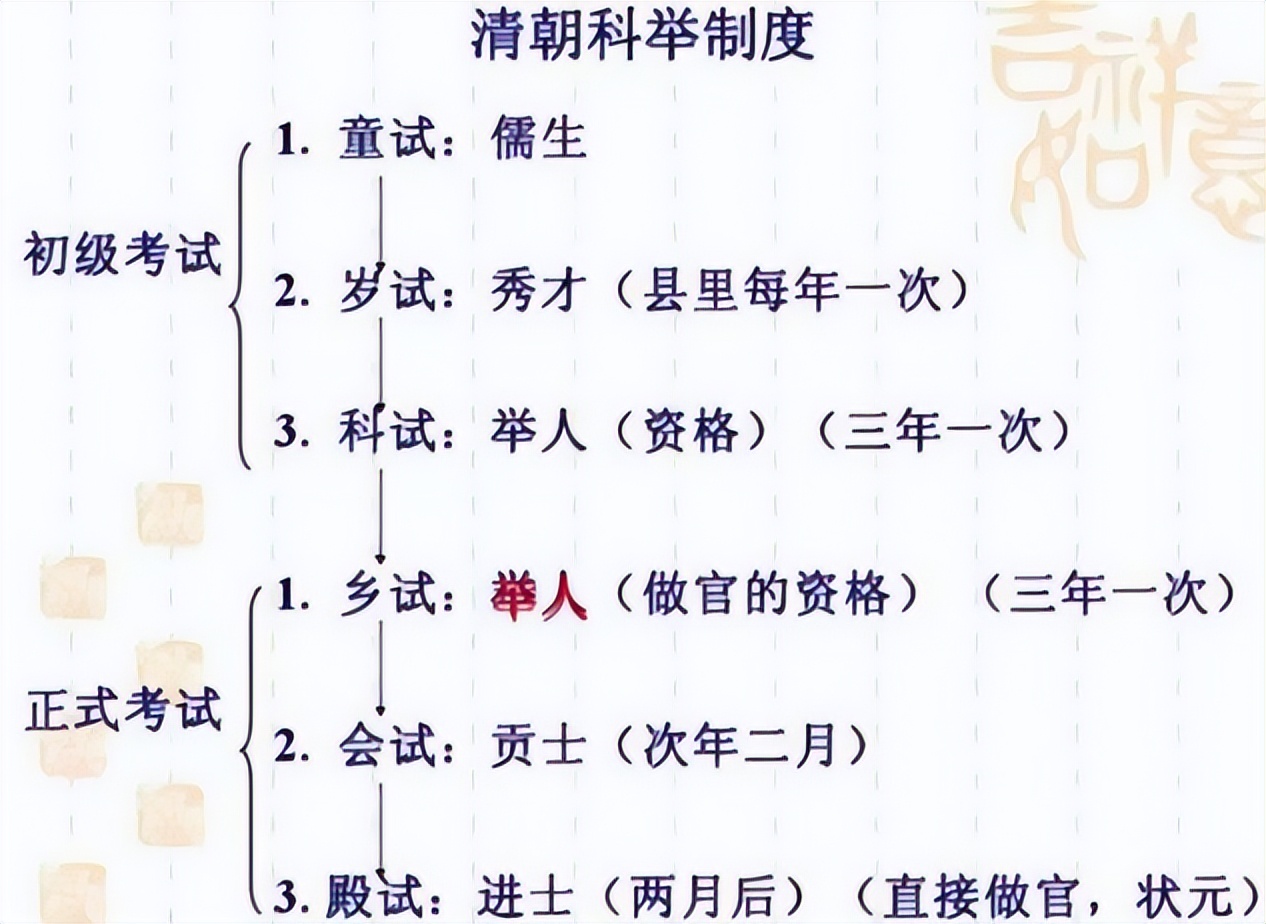 清朝科举制度
吉祥如意
初级考试
1. 童试：儒生
2. 岁试：秀才（县里每年一次）
3. 科试：举人（资格）（三年一次）
正式考试
1. 乡试：举人（做官的资格）（三年一次）
2. 会试：贡士（次年二月）
3. 殿试：进士（两月后）（直接做官，状元）